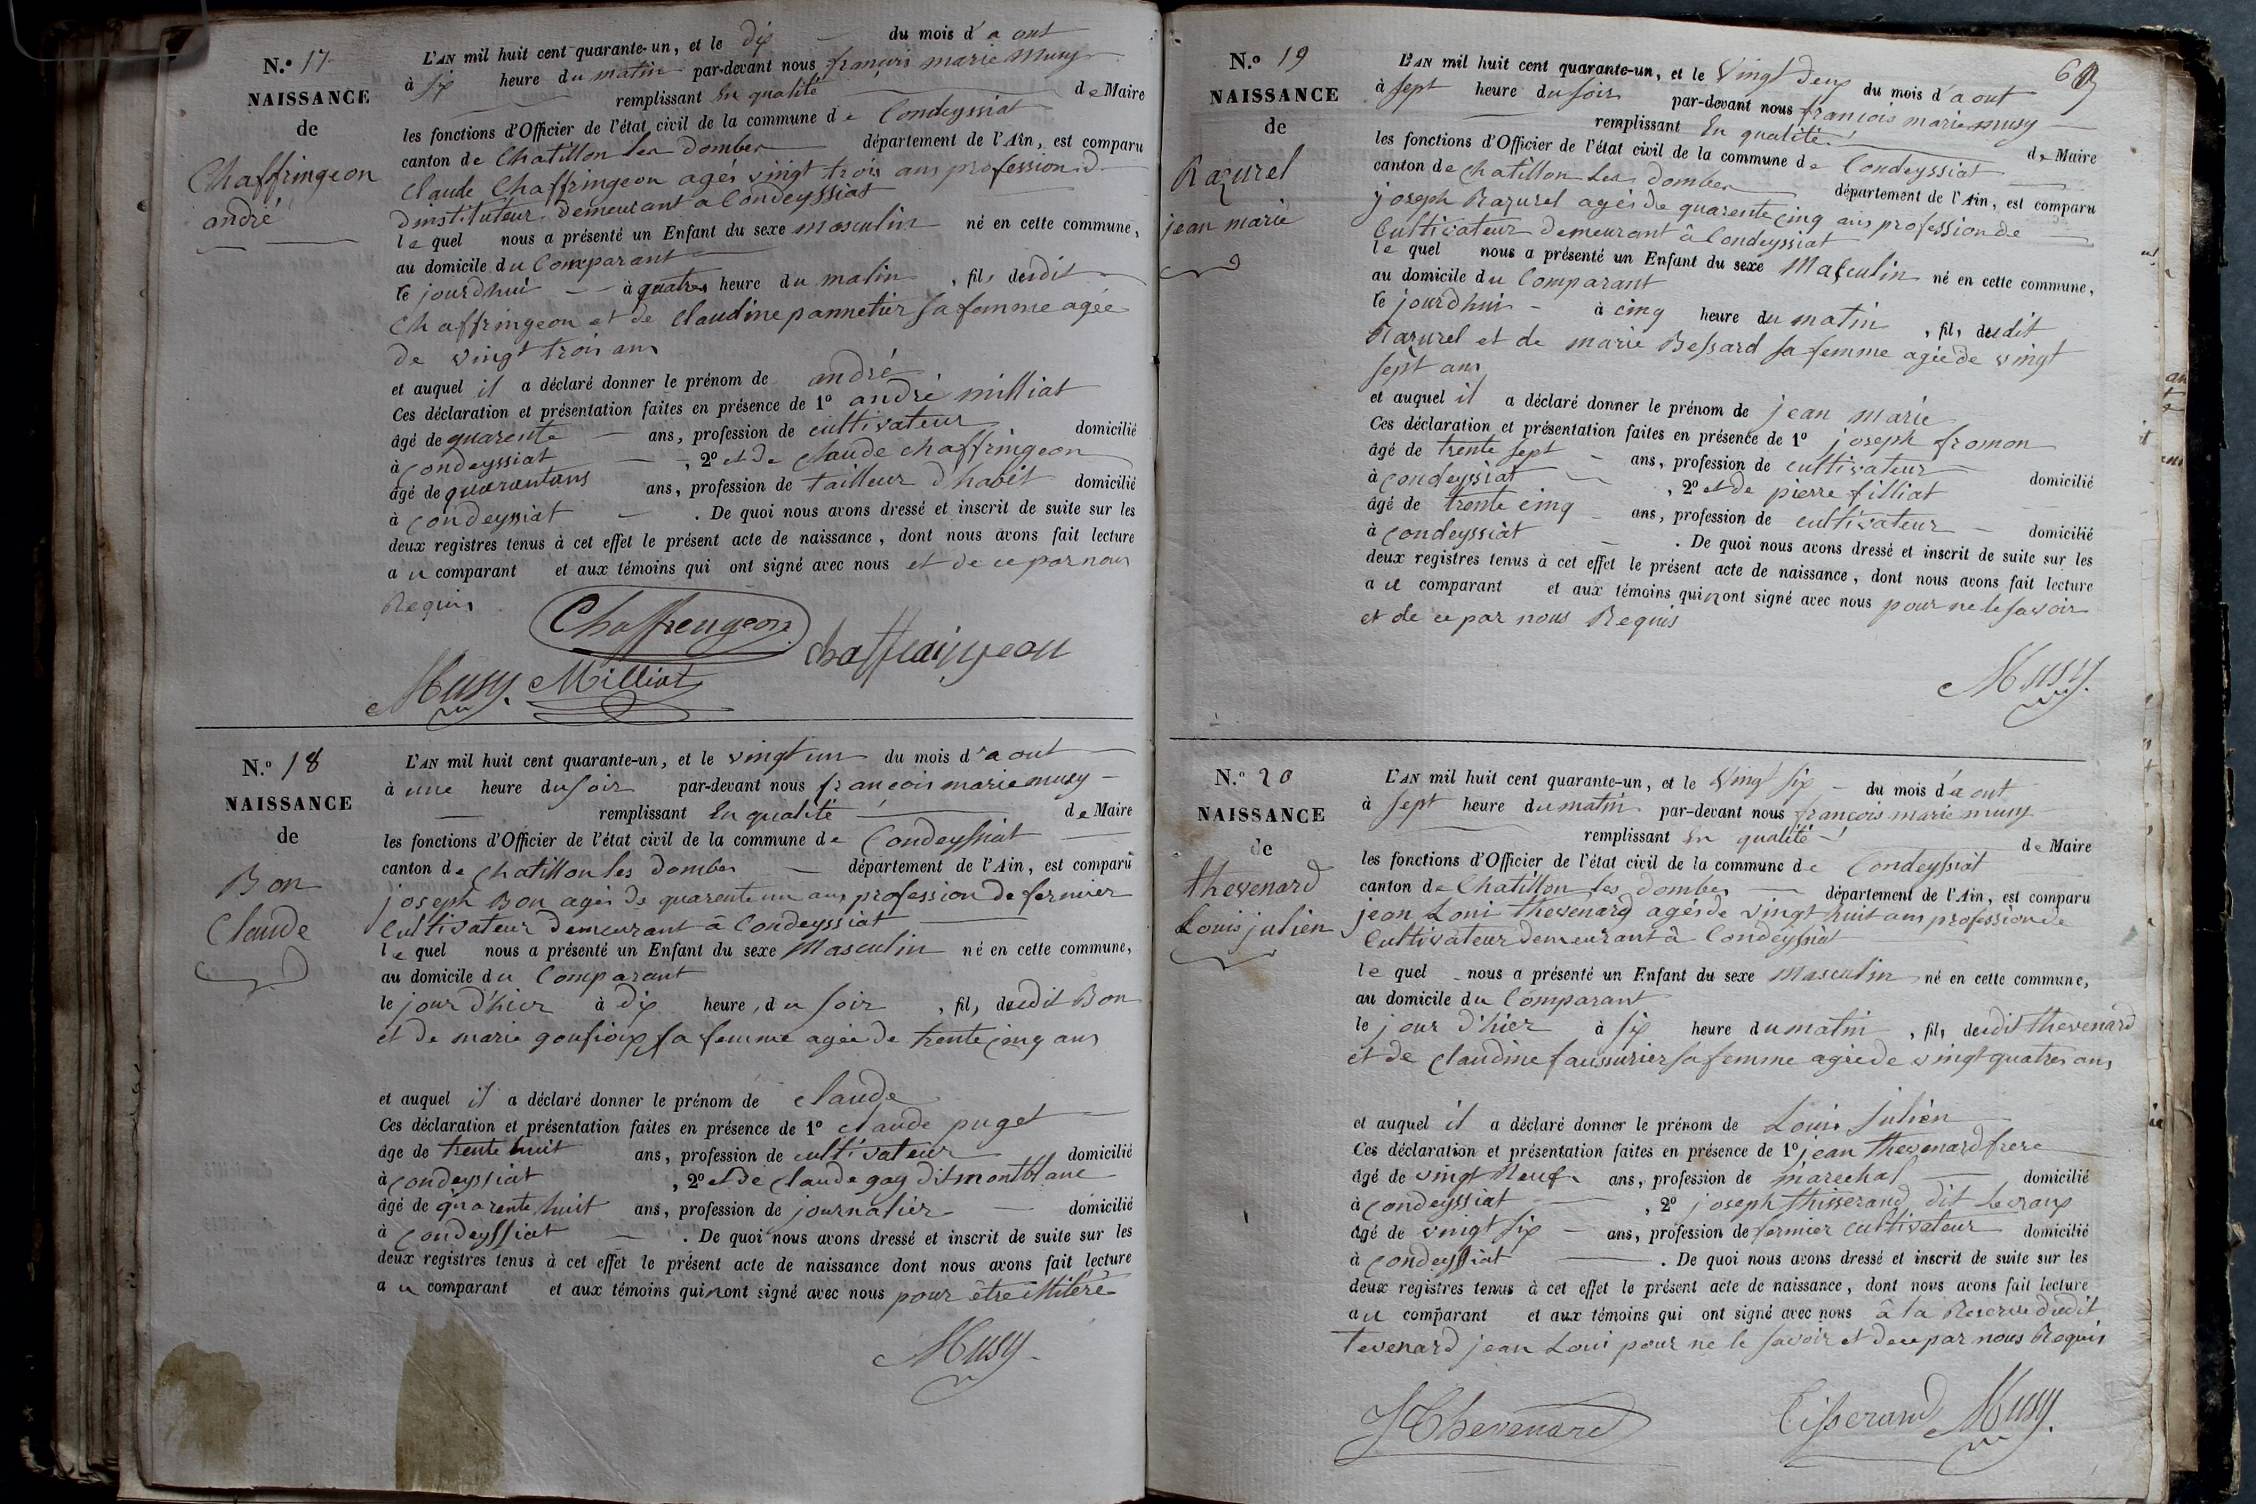 N.º 17
NAISSANCE
de
Chaffringeon
andré
L'AN mil huit cent quarante-un, et le dix du mois d'aout
à six heure du matin par-devant nous françois marie Musy
remplissant En qualité de Maire
les fonctions d'Officier de l'état civil de la commune de Condeyssiat
canton de Chatillon les Dombes département de l'Ain, est comparu
Claude Chaffringeon agés vingt trois ans profession d
dinstituteur demeurant a Condeyssiat
lequel nous a présenté un Enfant du sexe masculin né en cette commune,
au domicile du Comparant
le jourdhui à quatres heure du matin, fils dudit
Chaffringeon et de Claudine pannetier sa femme agée
de vingt trois ans
et auquel il a déclaré donner le prénom de andré
Ces déclaration et présentation faites en présence de 1º andré milliat
âgé de quarente ans, profession de cultivateur domicilié
à condeyssiat, 2º et de claude chaffringeon
âgé de quarantans ans, profession de tailleur d'habit domicilié
à condeyssiat. De quoi nous avons dressé et inscrit de suite sur les
deux registres tenus à cet effet le présent acte de naissance, dont nous avons fait lecture
au comparant et aux témoins qui ont signé avec nous et de ce par nous
Requis
Chaffrengeon
chaffraingeon
Musy. Milliat
N.º 18
NAISSANCE
de
Bon
Claude
L'AN mil huit cent quarante-un, et le vingt un du mois d'aout
à une heure du soir par-devant nous françois marie musy
remplissant En qualité de Maire
les fonctions d'Officier de l'état civil de la commune de Condeyssiat
canton de chatillon les dombes département de l'Ain, est comparu
joseph Bon agés de quarente un ans profession de fermier
Cultivateur demeurant à Condeyssiat
lequel nous a présenté un Enfant du sexe Masculin né en cette commune,
au domicile du Comparant
le jour d'hier à dix heure, du soir, fils dudit Bon
et de marie goufioix sa femme agée de trente cinq ans
et auquel il a déclaré donner le prénom de claude
Ces déclaration et présentation faites en présence de 1º claude puget
âge de trente huit ans, profession de cultivateur domicilié
à condeyssiat, 2º et de claude gay dit montblanc
âgé de quarente huit ans, profession de journalier domicilié
à condeyssiat. De quoi nous avons dressé et inscrit de suite sur les
deux registres tenus à cet effet le présent acte de naissance dont nous avons fait lecture
au comparant et aux témoins qui nont signé avec nous pour être illitéré
Musy
N.º 19
NAISSANCE
de
Razurel
jean marie
L'AN mil huit cent quarante-un, et le Vingt deux du mois d'aout
à sept heure du soir par-devant nous françois marie musy
remplissant En qualité de Maire
les fonctions d'Officier de l'état civil de la commune de Condeyssiat
canton de chatillon Les dombes département de l'Ain, est comparu
joseph Razurel agés de quarente cinq ans profession de
Cultivateur demeurant à Condeyssiat
lequel nous a présenté un Enfant du sexe Masculin né en cette commune,
au domicile du Comparant
le jourdhui à cinq heure du matin, fils dudit
Razurel et de marie Bessard sa femme agée de vingt
sept ans
et auquel il a déclaré donner le prénom de jean marie
Ces déclaration et présentation faites en présence de 1º joseph fromon
âgé de trente sept ans, profession de cultivateur domicilié
à condeyssiat, 2º et de pierre filliat
âgé de trente cinq ans, profession de cultivateur domicilié
à condeyssiat. De quoi nous avons dressé et inscrit de suite sur les
deux registres tenus à cet effet le présent acte de naissance, dont nous avons fait lecture
au comparant et aux témoins qui nont signé avec nous pour ne le savoir
et de ce par nous Requis
Musy.
N.º 20
NAISSANCE
de
thevenard
Louis julien
L'AN mil huit cent quarante-un, et le Vingt six du mois d'aout
à sept heure du matin par-devant nous françois marie musy
remplissant En qualité de Maire
les fonctions d'Officier de l'état civil de la commune de Condeyssiat
canton de Chatillon les dombes département de l'Ain, est comparu
jean Loui thevenard agés de vingt huit ans profession de
Cultivateur demeurant à Condeyssiat
lequel nous a présenté un Enfant du sexe masculin né en cette commune,
au domicile du Comparant
le jour d'hier à six heure du matin, fils dudit thevenard
et de claudine faussurier sa femme agée de vingt quatres ans
et auquel il a déclaré donner le prénom de Louis Julien
Ces déclaration et présentation faites en présence de 1º jean thevenard frere
âgé de vingt Neuf ans, profession de marechal domicilié
à condeyssiat, 2º joseph thisserand dit
âgé de vingt six ans, profession de fermier cultivateur domicilié
à condeyssiat. De quoi nous avons dressé et inscrit de suite sur les
deux registres tenus à cet effet le présent acte de naissance, dont nous avons fait lecture
au comparant et aux témoins qui ont signé avec nous à la Reserve dudit
Tevenard jean Loui pour ne le savoir et de ce par nous Requis
J Thevenard
Tisserand Musy.